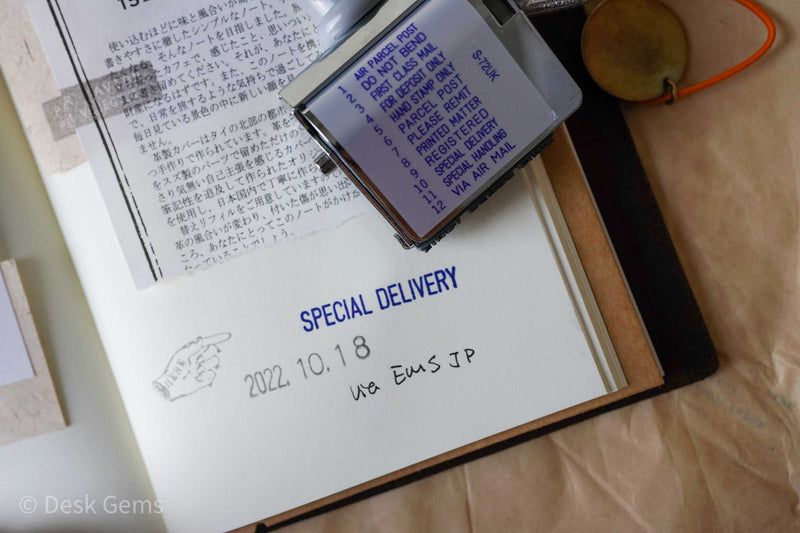 使い込むほどに味と風合いが
きやすさに徹したシンプルなノート。
そんなノートを目指しました。
カフェで、感じたこと、思いつい
めてください。それが、あなたに
財産になるはずです。また、このノートを携
で、日常を旅するような気持ちで過ごして
毎日見ている景色の中に新しい顔を見
ません。
革製カバーはタイの北部の都市
つ手作りで作られています。革を
をスズ製のパーツで留めただけの
さり気無い自己主張を感じるカバー
筆記性を追及して作られたオリジ
を使用し、日本国内で丁寧に作
替えリフィルをご用意しています
革の風合いが変わり、付いた傷が思い出
ころ、あなたにとってこのノートがかけ
なっていることでしょう。
1 AIR PARCEL POST
2 DO NOT BEND
3 FIRST CLASS MAIL
4 FOR DEPOSIT ONLY
5 HAND STAMP ONLY
6 PARCEL POST
7 PLEASE REMIT
8 PRINTED MATTER
9 REGISTERED
10 SPECIAL DELIVERY
11 SPECIAL HANDLING
12 VIA AIR MAIL
S-72UK
SPECIAL DELIVERY
2022.10.18
via EMS JP
© Desk Gems